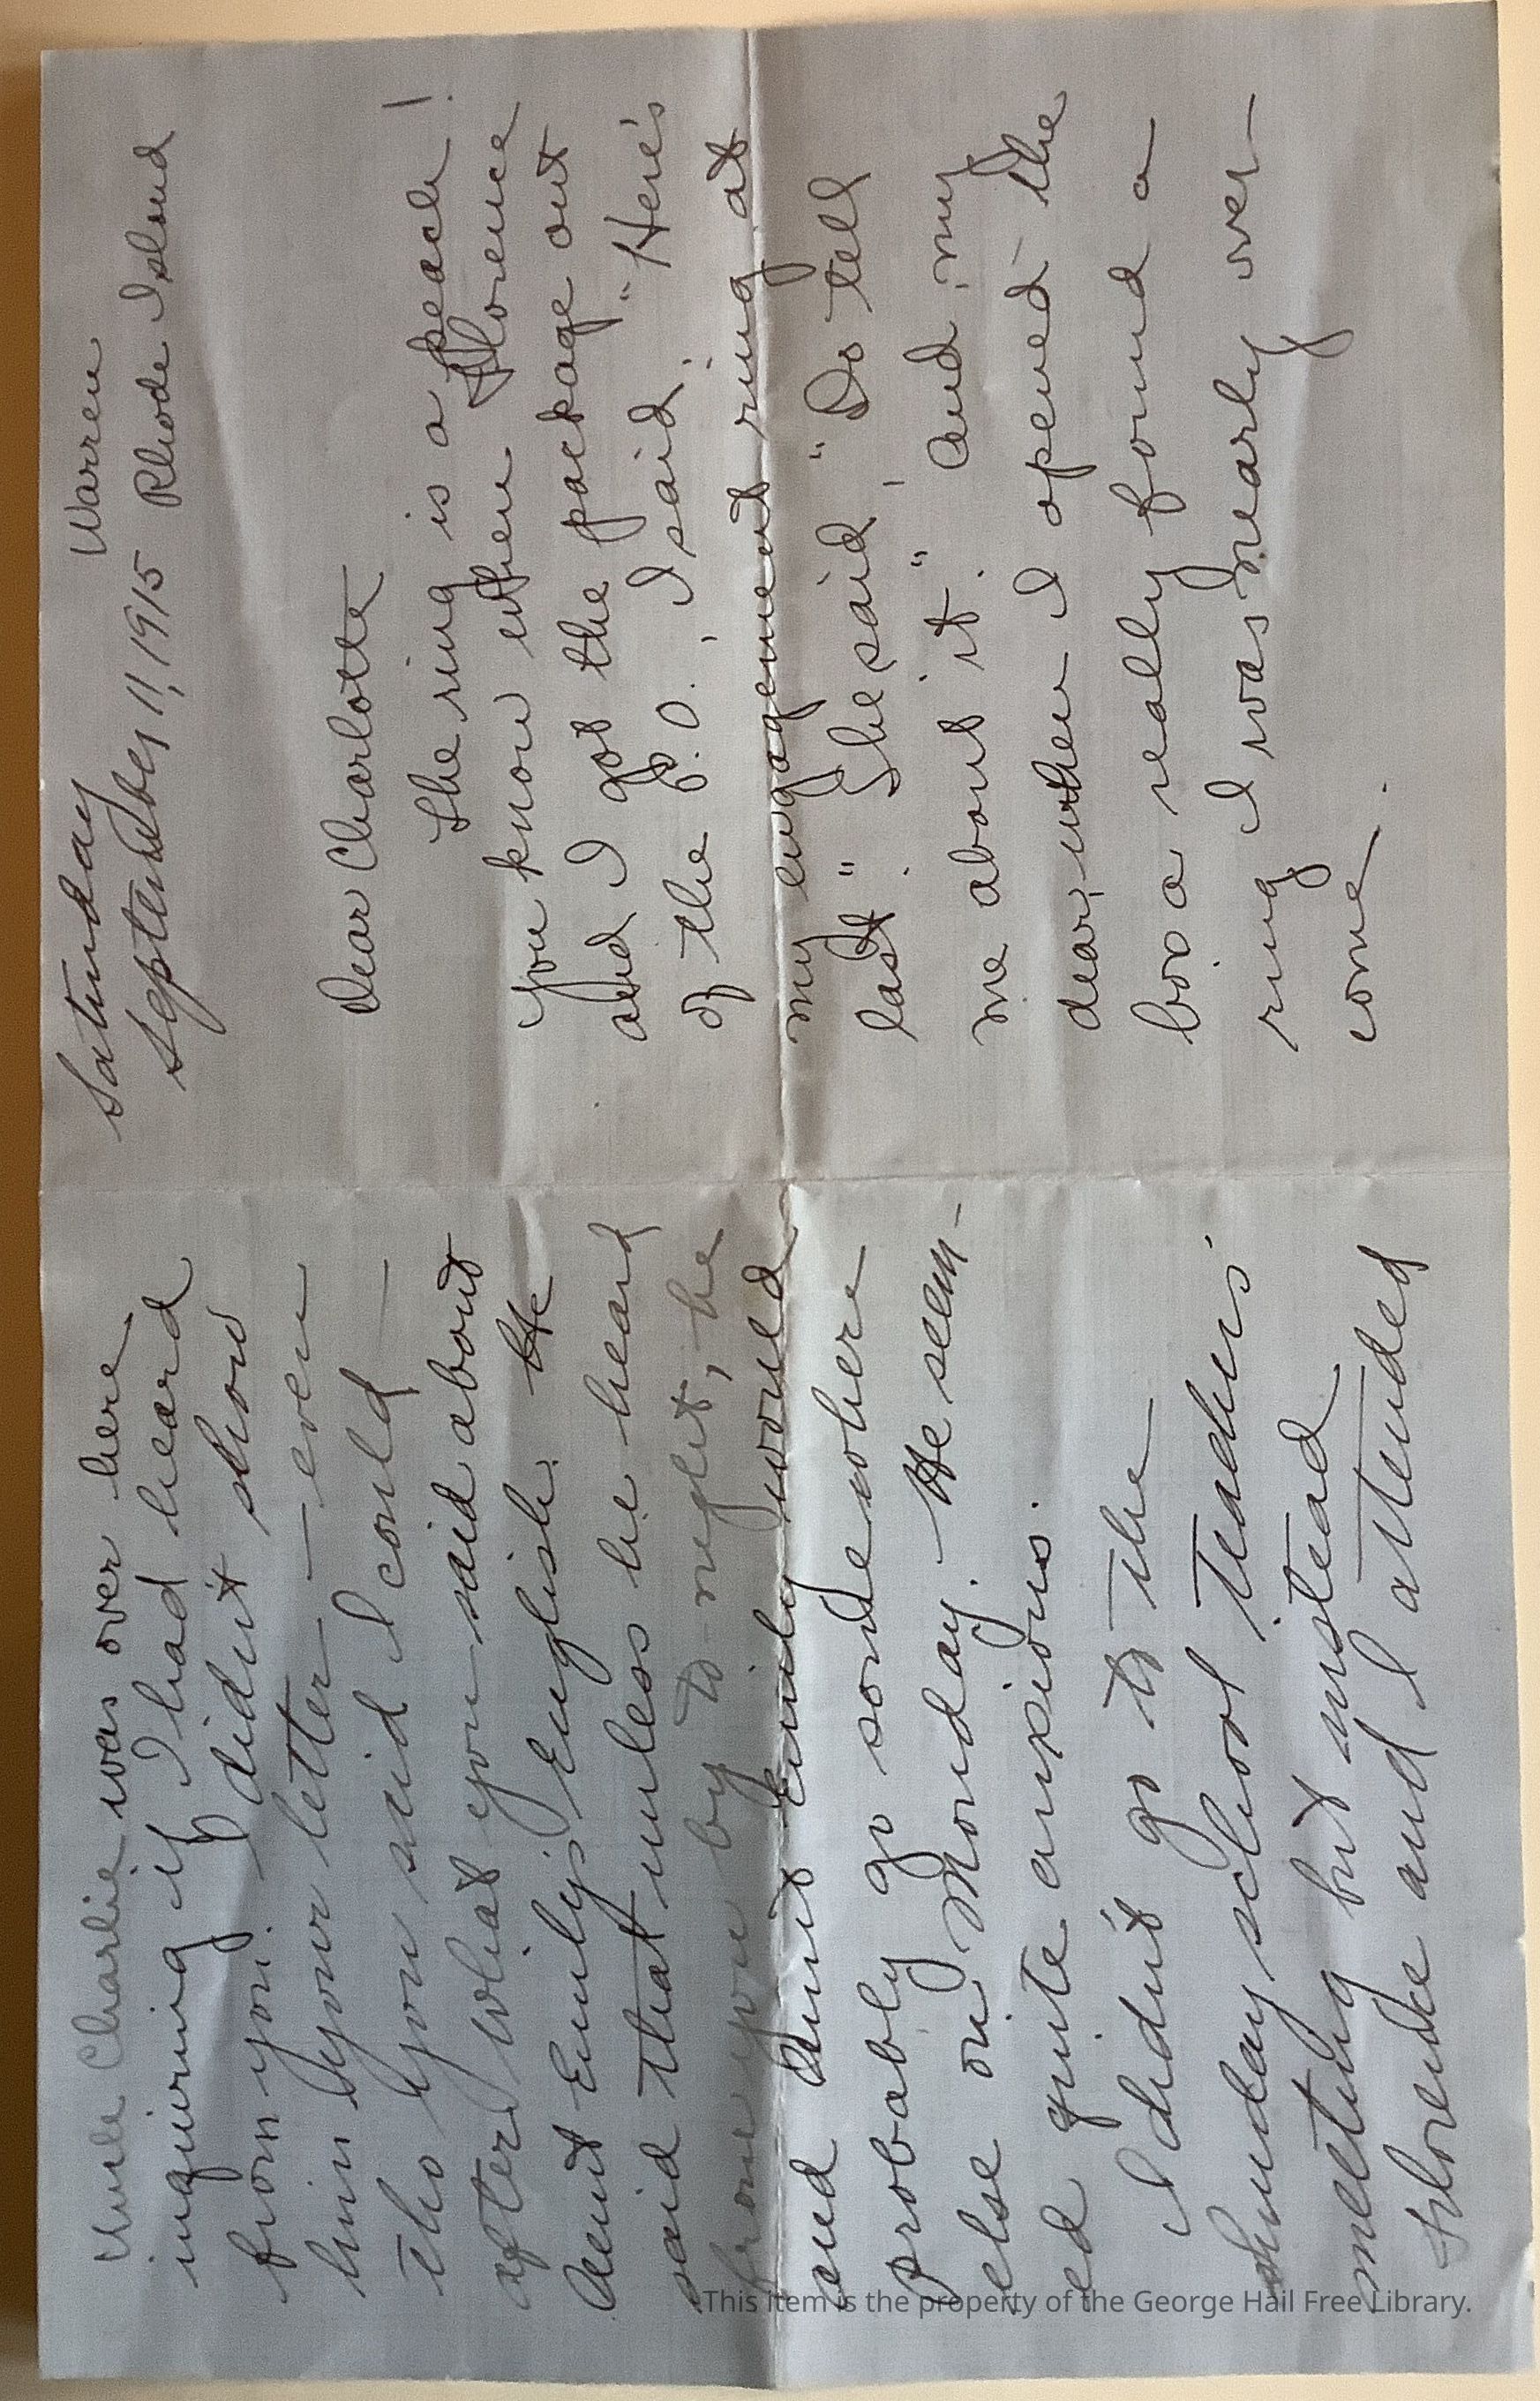 Saturday Warren
September 11, 1915 Rhode Island
Dear Charlotte
The ring is a peach!
You know when Florence
and I got the package out
of the P.O., I said: "Here's
my engagement ring at
last." She said, "Do tell
me about it." And, my
dear, when I opened the
box a really found a
ring I was nearly over-
come.
Uncle Charlie was over here
inquiring if I had heard
from you. I didn't show
him your letter — even
tho you said I could —
after what you said about
Aunt Emily's English. He
said that unless he heard
from you by to-night, he
and Aunt Emily would
probably go somewhere
else on Monday. He seem-
ed quite anxious.
I didn't go to the
Sunday school teachers'
meeting but instead
Florence and I attended
This item is the property of the George Hail Free Library.